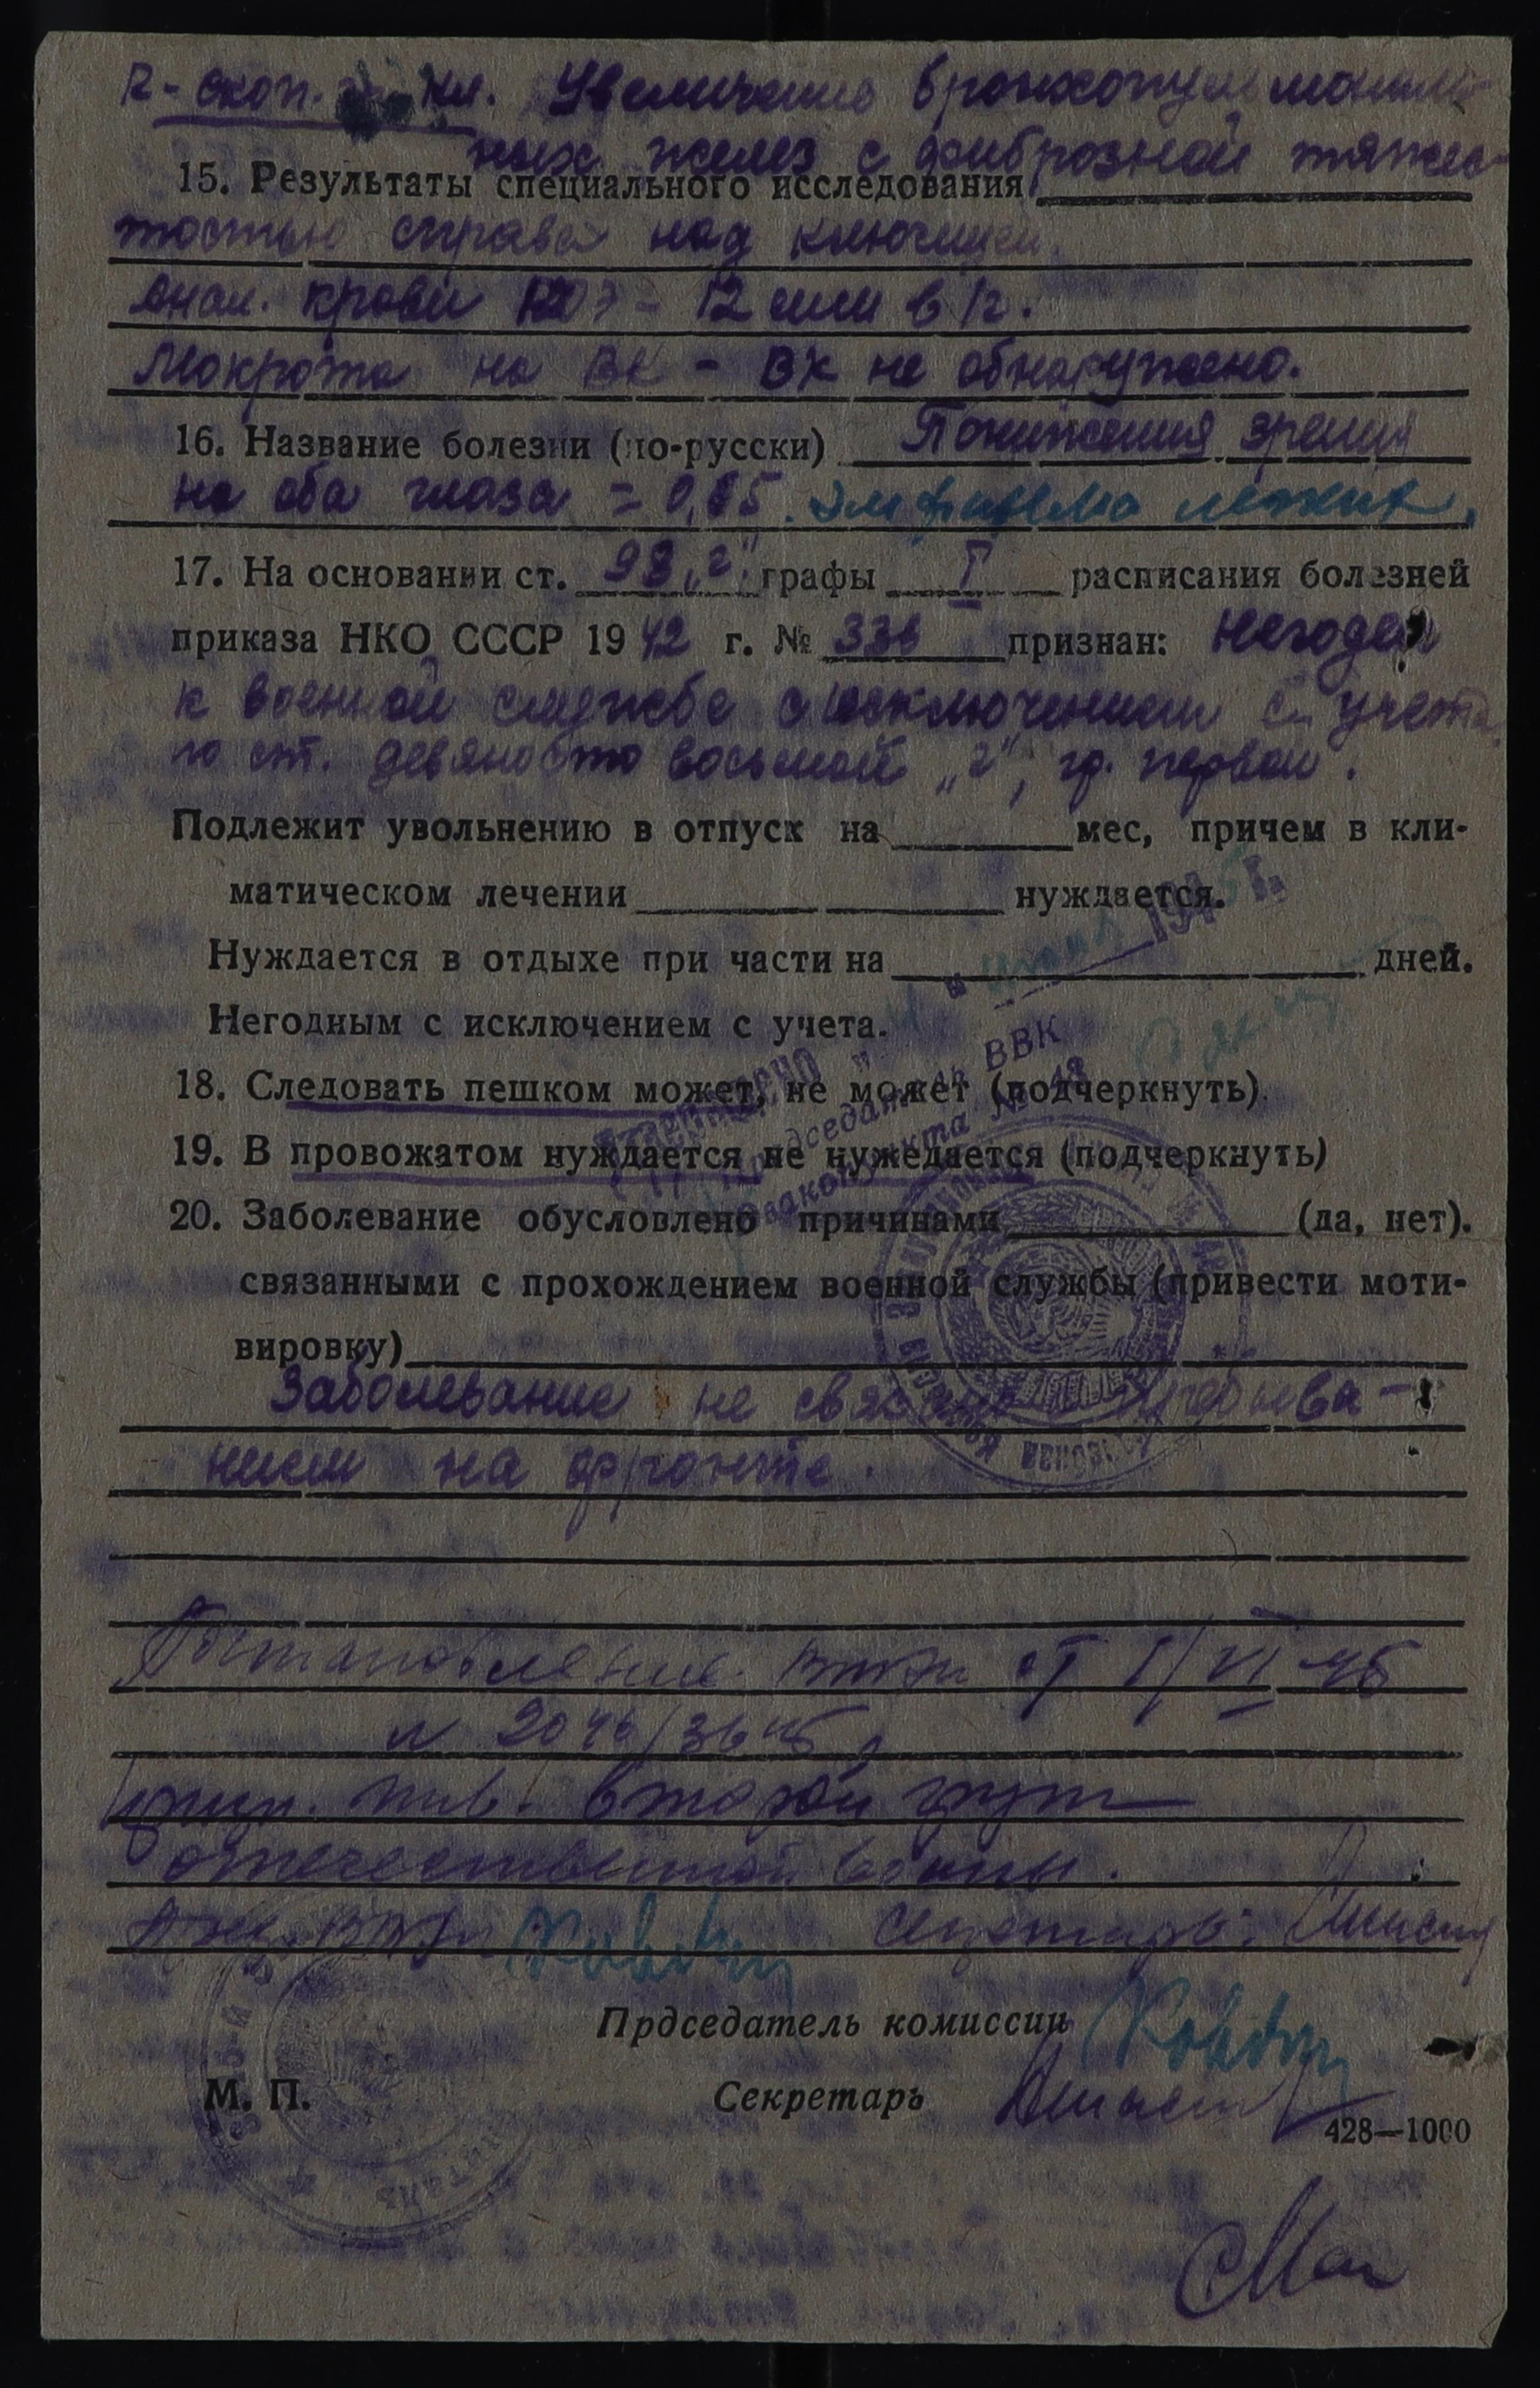 R-скоп. кл. Увеличение бронхопульмональ-
ных желез с фиброзной тяжис-
15. Результаты специального исследования
тостью справа над ключицей.
Анал. крови РОЭ - 12 мм в 1ч.
Мокрота на ВК - ВК не обнаружено.
16. Название болезни (по-русски) Понижения зрения
на оба глаза = 0,05. Эмфизема легких.
17. На основании ст. 98 „г" графы I расписания болезней
приказа НКО СССР 1942 г. № 336 признан: Негоден
к военной службе с исключением с учета
по ст. девяносто восьмой „г", гр. первой.
Подлежит увольнению в отпуск на мес, причем в кли-
матическом лечении нуждается.
Нуждается в отдыхе при части на дней.
Негодным с исключением с учета.
1945 г.
Утверждено
Председатель ВВК
Эвакопункта № 48
18. Следовать пешком может, не может (подчеркнуть).
19. В провожатом нуждается не нужедается (подчеркнуть)
20. Заболевание обусловлено причинами (да, нет).
связанными с прохождением военной службы (привести моти-
вировку)
Заболевание не связано с пребыва-
нием на фронте.
Постановление ВТЭК от I/VI 45
N 2046/36
инв. второй груп
отечественной войны.
ВТЭК Секретарь:
Прдседатель комиссии
М. П. Секретарь
428—1000